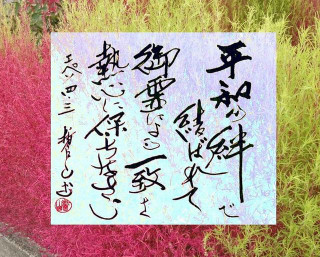 平和の絆で
結ばれて
御霊による一致を
熱心に保ちなさい
エペ四・三